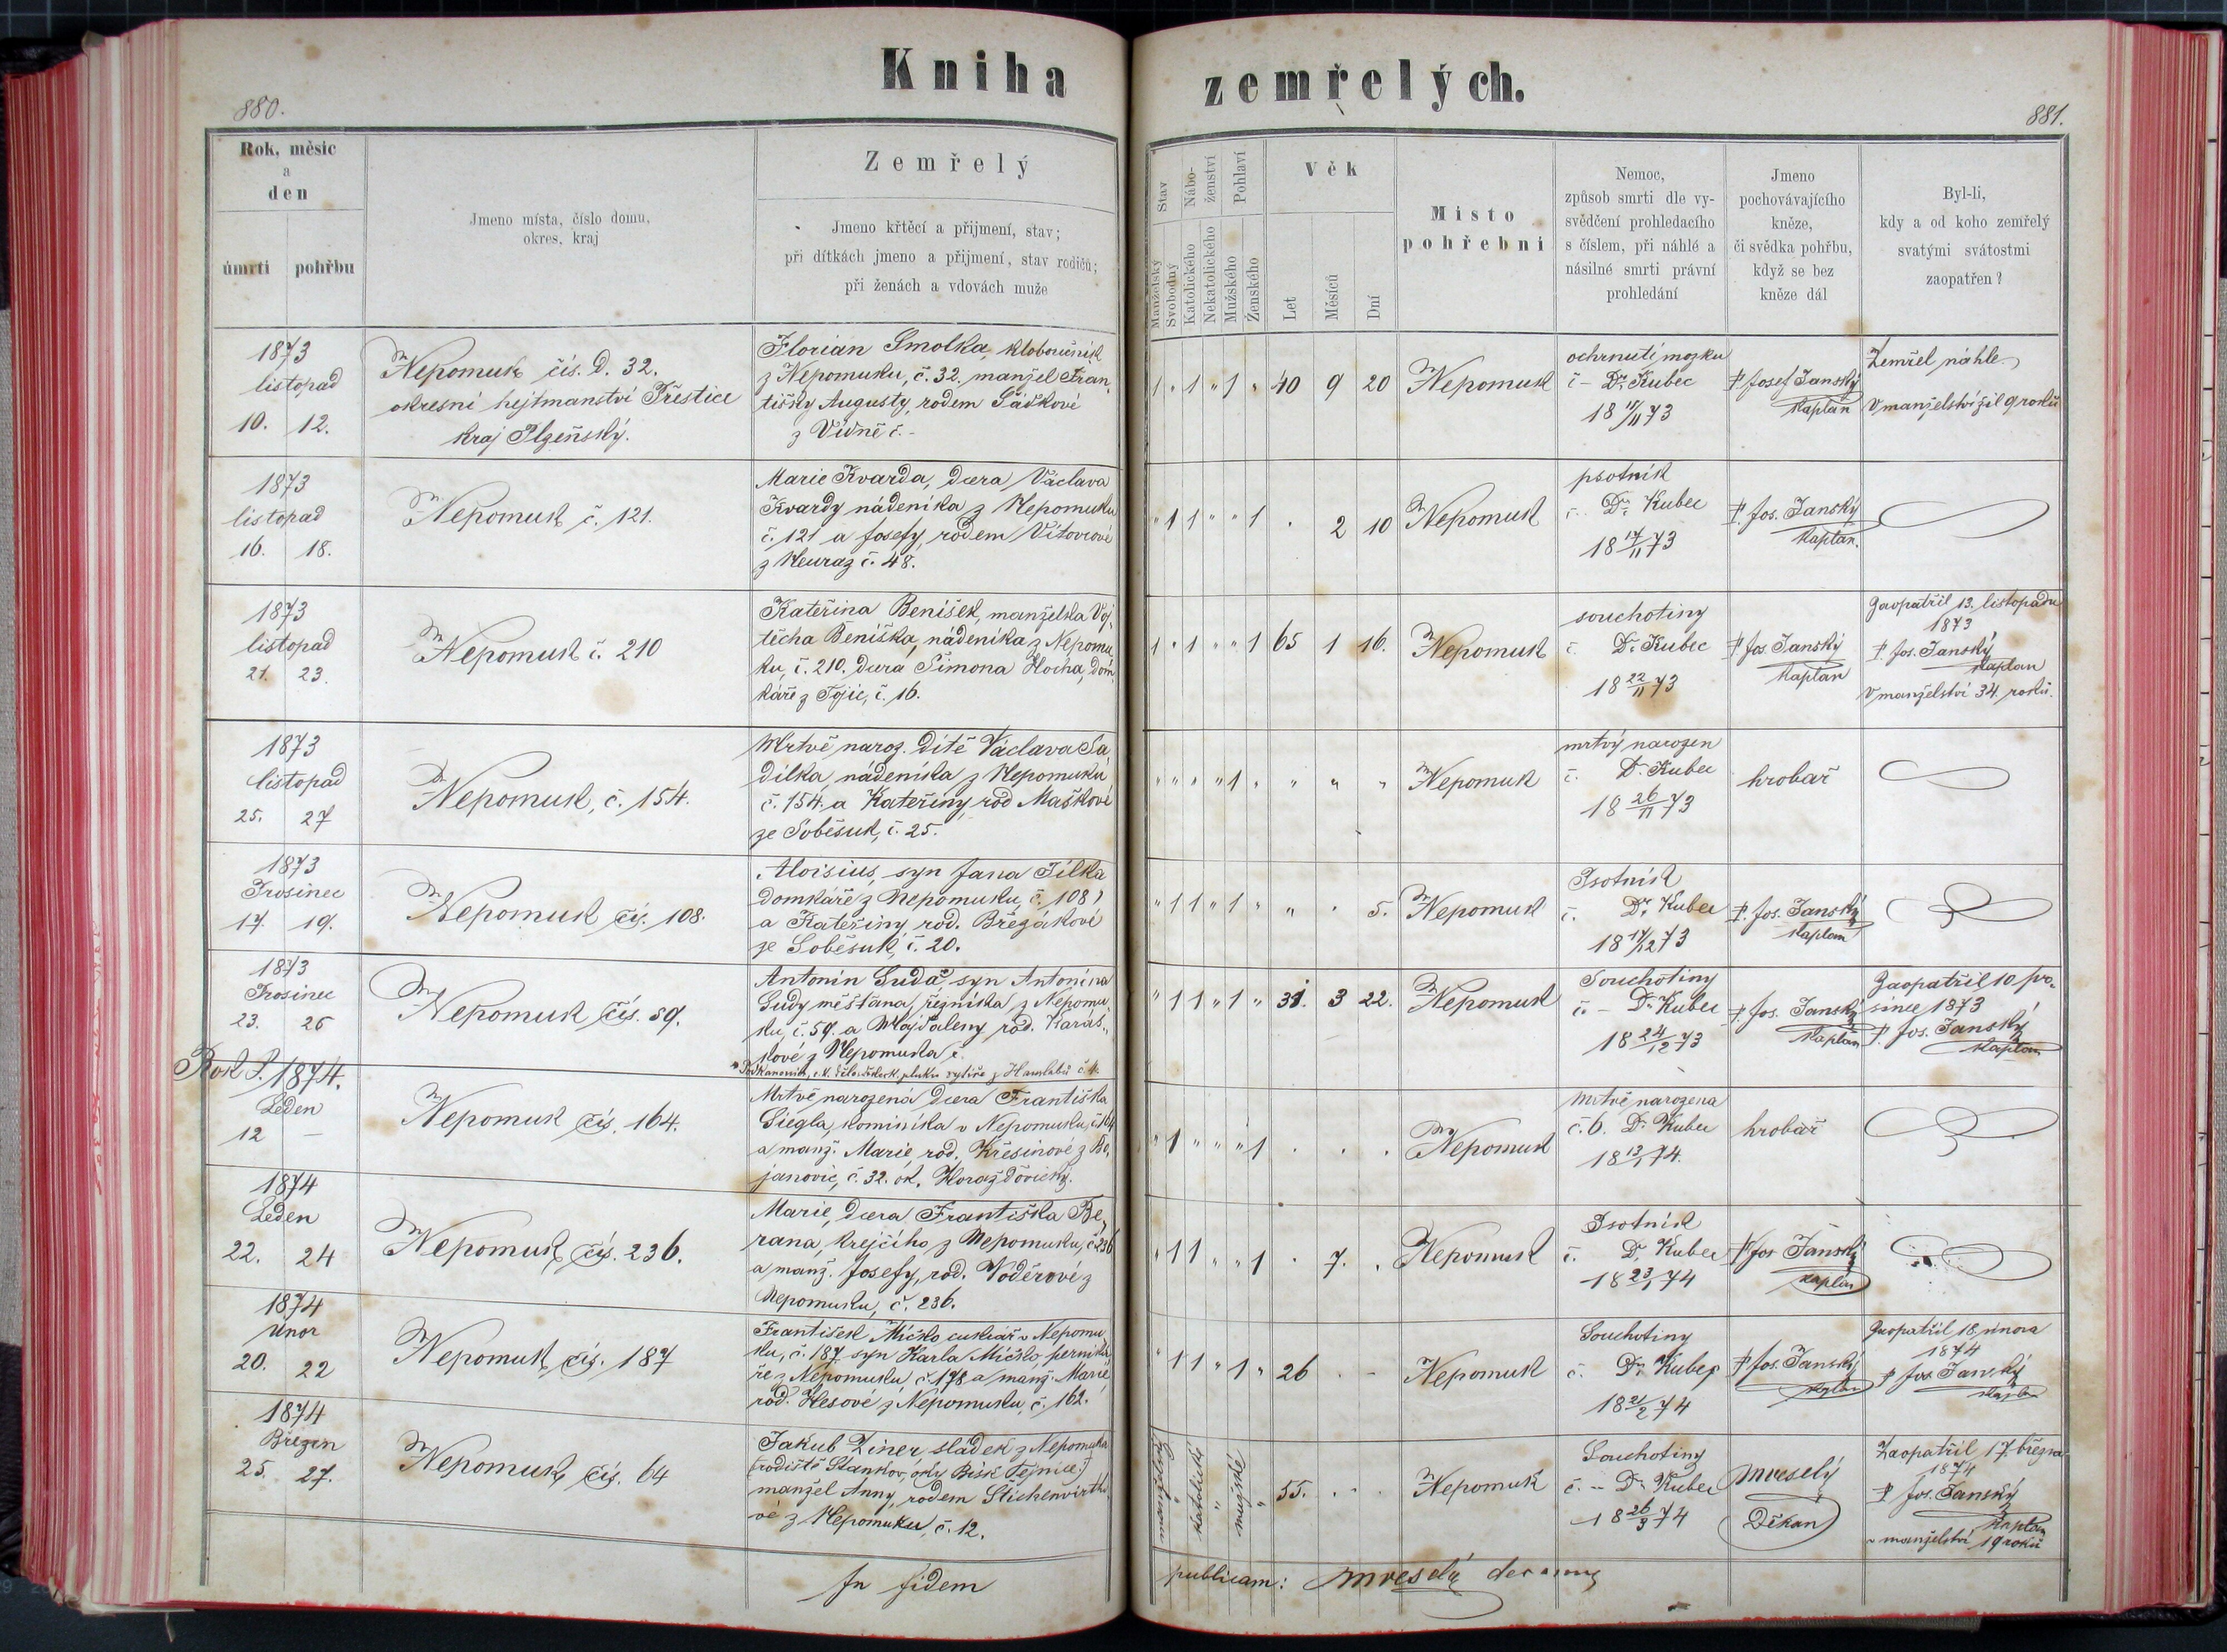 Kniha zemřelých.
880.
881.
Rok, měsíc
a
den
úmrtí pohřbu
Jmeno místa, číslo domu,
okres, kraj
Zemřelý
Jmeno křtěcí a přijmení, stav;
při dítkách jmeno a přijmení, stav rodičů;
při ženách a vdovách muže
Stav
Nábo-
ženství
Pohlaví
Manželský
Svobodný
Katolického
Nekatolického
Mužského
Ženského
Věk
Let
Měsíců
Dní
Místo
pohřební
Nemoc,
způsob smrti dle vy-
svědčení prohledacího
s číslem, při náhlé a
násilné smrti právní
prohledání
Jmeno
pochovávajícího
kněze,
či svědka pohřbu,
když se bez
kněze dál
Byl-li,
kdy a od koho zemřelý
svatými svátostmi
zaopatřen?
1873
listopad
10. 12.
Nepomuk čís. D. 32.
okresní hejtmanství Přestice
kraj Plzeňský.
Florian Smolka, kloboučník
z Nepomuku, č. 32. manžel Fran-
tišky Augusty, rodem Šáškové
z Vídně č. -
1 " 1 " 1 " 40 9 20
Nepomuk
ochrnutí mozku
č - Dr. Kubec
18 11/11 73
P. Josef Janský
kaplan
Zemřel náhle.
V manželství žil 9 roků
1873
listopad
16. 18.
Nepomuk č. 121.
Marie Kvarda, dcera Václava
Kvardy nádeníka z Nepomuku
č. 121 a Josefy, rodem Vítovcové
z Neuraz č. 48.
" 1 1 " " 1 . 2 10
Nepomuk
psotník
č. Dr. Kubec
18 17/11 73
P. Jos. Janský
kaplan.
1873
listopad
21. 23.
Nepomuk č. 210
Kateřina Beníšek, manželka Voj-
těcha Beníška, nádeníka z Nepomu-
ku, č. 210. dcera Šimona Hocha, dom-
káře z Tojic, č. 16.
1 " 1 " " 1 65 1 16.
Nepomuk
souchotiny
č. Dr. Kubec
18 22/11 73
P. Jos. Janský
kaplan
Zaopatřil 13. listopadu
1873
P. Jos. Janský
kaplan
V manželství 34. roků.
1873
listopad
25. 27
Nepomuk, č. 154.
Mrtvě naroz. dítě Václava Sa-
dílka, nádeníka z Nepomuku
č. 154. a Kateřiny, rod Maškové
ze Soběsuk, č. 25.
" " " " 1 " " " "
Nepomuk
mrtvý narozen
č. Dr. Kubec
18 26/11 73
hrobař
1873
Prosinec
17. 19.
Nepomuk čís. 108.
Aloisius, syn Jana Jílka
domkáře z Nepomuku, č. 108,
a Kateřiny, rod. Březákové
ze Soběsuk, č. 20.
" 1 1 " 1 " " . 5.
Nepomuk
Psotník
č. Dr. Kubec
18 17/12 73
P. Jos. Janský
kaplan
1873
Prosinec
23. 26
Nepomuk, čís. 59.
Antonín Suda*, syn Antonína
Sudy měšťana, řezníka z Nepomu-
ku, č. 59. a Majdaleny rod. Karás-
kové z Nepomuka č.
" 1 1 " 1 " 31. 3 22.
Nepomuk
Souchotiny
č. - Dr. Kubec
18 24/12 73
P. Jos. Janský
kaplan
Zaopatřil 10 pro-
since 1873
P. Jos. Janský
kaplan
Rok P. 1874.
Leden
12 -
Nepomuk čís. 164.
Mrtvě narozená dcera Františka
Siegla, kominíka v Nepomuku, č 164
a manž. Marie, rod. Křesinové z Bo-
janovic, č. 32. ok. Horažďovický.
" 1 " " " 1 . . .
Nepomuk
Mrtvě narozena
č. 6. Dr. Kubec
18 13/1 74.
hrobař
1874
Leden
22. 24
Nepomuk, čís. 236.
Marie, dcera Františka Be-
rana, krejčího z Nepomuku, č. 236
a manž. Josefy, rod. Voděrové z
Nepomuku, č. 236.
" 1 1 " " 1 . 7. .
Nepomuk
Psotník
č. Dr. Kubec
18 23/1 74
P. Jos Janský
kaplan
1874
Únor
20. 22
Nepomuk, čís. 187
František Míčko, cukrář v Nepomu-
ku, č. 187 syn Karla Míčko, perníká-
ře z Nepomuku č. 178 a manž. Marie,
rod. Hesové z Nepomuku, č. 162.
" 1 1 " 1 " 26 . -
Nepomuk
Souchotiny
č. Dr. Kubec
18 21/2 74
P. Jos. Janský
kaplan
Zaopatřil 18. února
1874
P. Jos. Janský
kaplan
1874
Březen
25. 27.
Nepomuk, čís. 64
Jakub Ziner, sládek z Nepomuka
manžel Anny, rodem Stichenvirtho-
vé z Nepomuku, č. 12.
manželský " katolické " mužské " 55. . .
Nepomuk
Souchotiny
č. - Dr. Kubec
18 26/3 74
MVeselý
Děkan
Zaopatřil 17. března
1874
P. Jos. Janský
kaplan
v manželství 19 roků
In fidem publicam: MVeselý